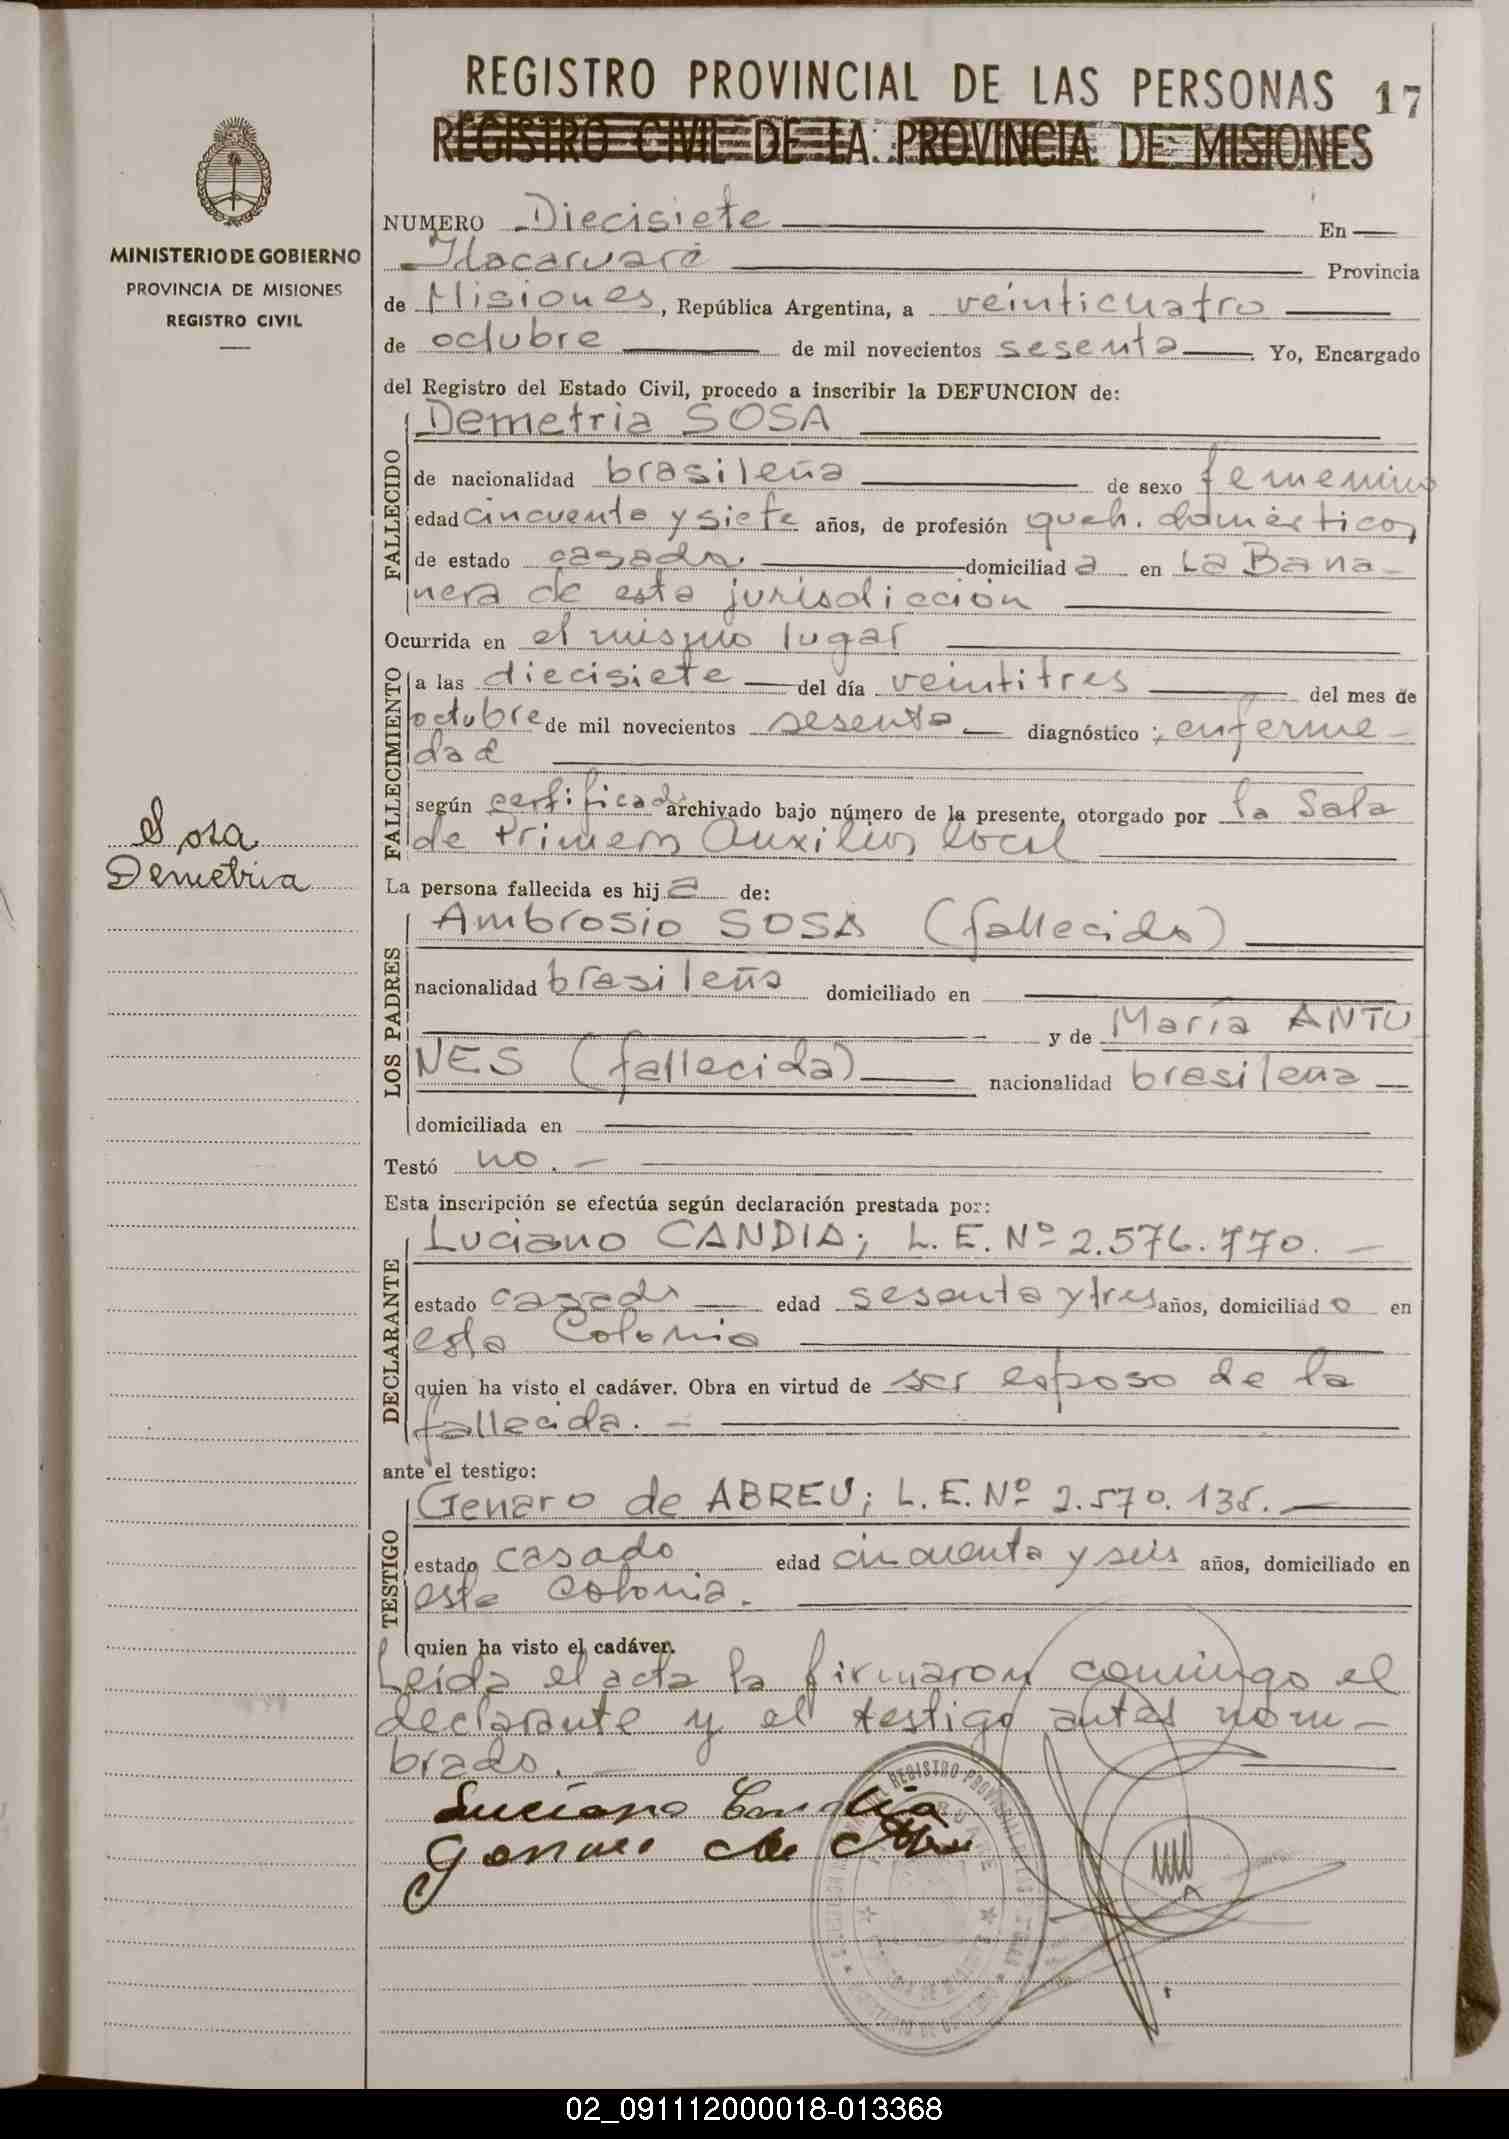 REGISTRO PROVINCIAL DE LAS PERSONAS 17
REGISTRO CIVIL DE LA PROVINCIA DE MISIONES
MINISTERIO DE GOBIERNO
PROVINCIA DE MISIONES
REGISTRO CIVIL
NUMERO Diecisiete En
Itacaruaré Provincia
de Misiones, República Argentina, a veinticuatro
de octubre de mil novecientos sesenta. Yo, Encargado
del Registro del Estado Civil, procedo a inscribir la DEFUNCION de:
FALLECIDO
Demetria SOSA
de nacionalidad brasileña de sexo femenino
edad cincuenta y siete años, de profesión queh. domésticos,
de estado casada domiciliad a en La Bana-
nera de esta jurisdicción
Ocurrida en el mismo lugar
FALLECIMIENTO
a las diecisiete del día veintitres del mes de
octubre de mil novecientos sesenta diagnóstico ; enferme-
dad
según certificado archivado bajo número de la presente, otorgado por la Sala
de Primeros Auxilios local
Sosa
Demetria
La persona fallecida es hij a de:
LOS PADRES
Ambrosio SOSA (fallecido)
nacionalidad brasileña domiciliado en
y de María ANTU
NES (fallecida) nacionalidad brasileña
domiciliada en
Testó no.-
Esta inscripción se efectúa según declaración prestada por:
DECLARANTE
Luciano CANDIA; L. E. Nº 2.576.770.-
estado casado edad sesenta y tres años, domiciliad o en
esta Colonia
quien ha visto el cadáver. Obra en virtud de ser esposo de la
fallecida.-
ante el testigo:
TESTIGO
Genaro de ABREU; L. E. Nº 2.570.
estado casado edad cincuenta y seis años, domiciliado en
esta Colonia.
quien ha visto el cadáver.
Leída el acta la firmaron conmigo el
declarante y el testigo antes nom-
brado.-
Luciano Candia
Genaro de Abreu
02_091112000018-013368